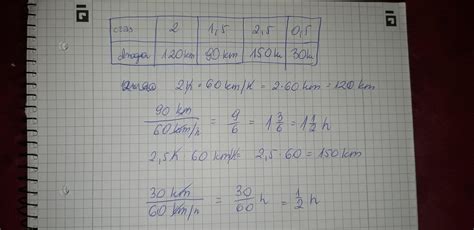 czas 2 1,5 2,5 0,5
droga 120km 90km 150km 30km
2h · 60 km/h = 2·60km = 120km
90 km / 60 km/h = 9/6 = 1 3/6 = 1 1/2 h
2,5h · 60 km/h = 2,5 · 60 = 150km
30 km / 60 km/h = 30/60 h = 1/2 h